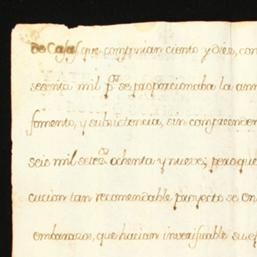 de Casas que componian ciento y diez, con
sesenta mil p.s se proporcionaba la ann
fomento, y subsistencia, sin comprender
seis mil setez.s ochenta y nueve; pero que
cucion tan recomendable proyecto se en
embarazos, que hacian inverifiable su ef